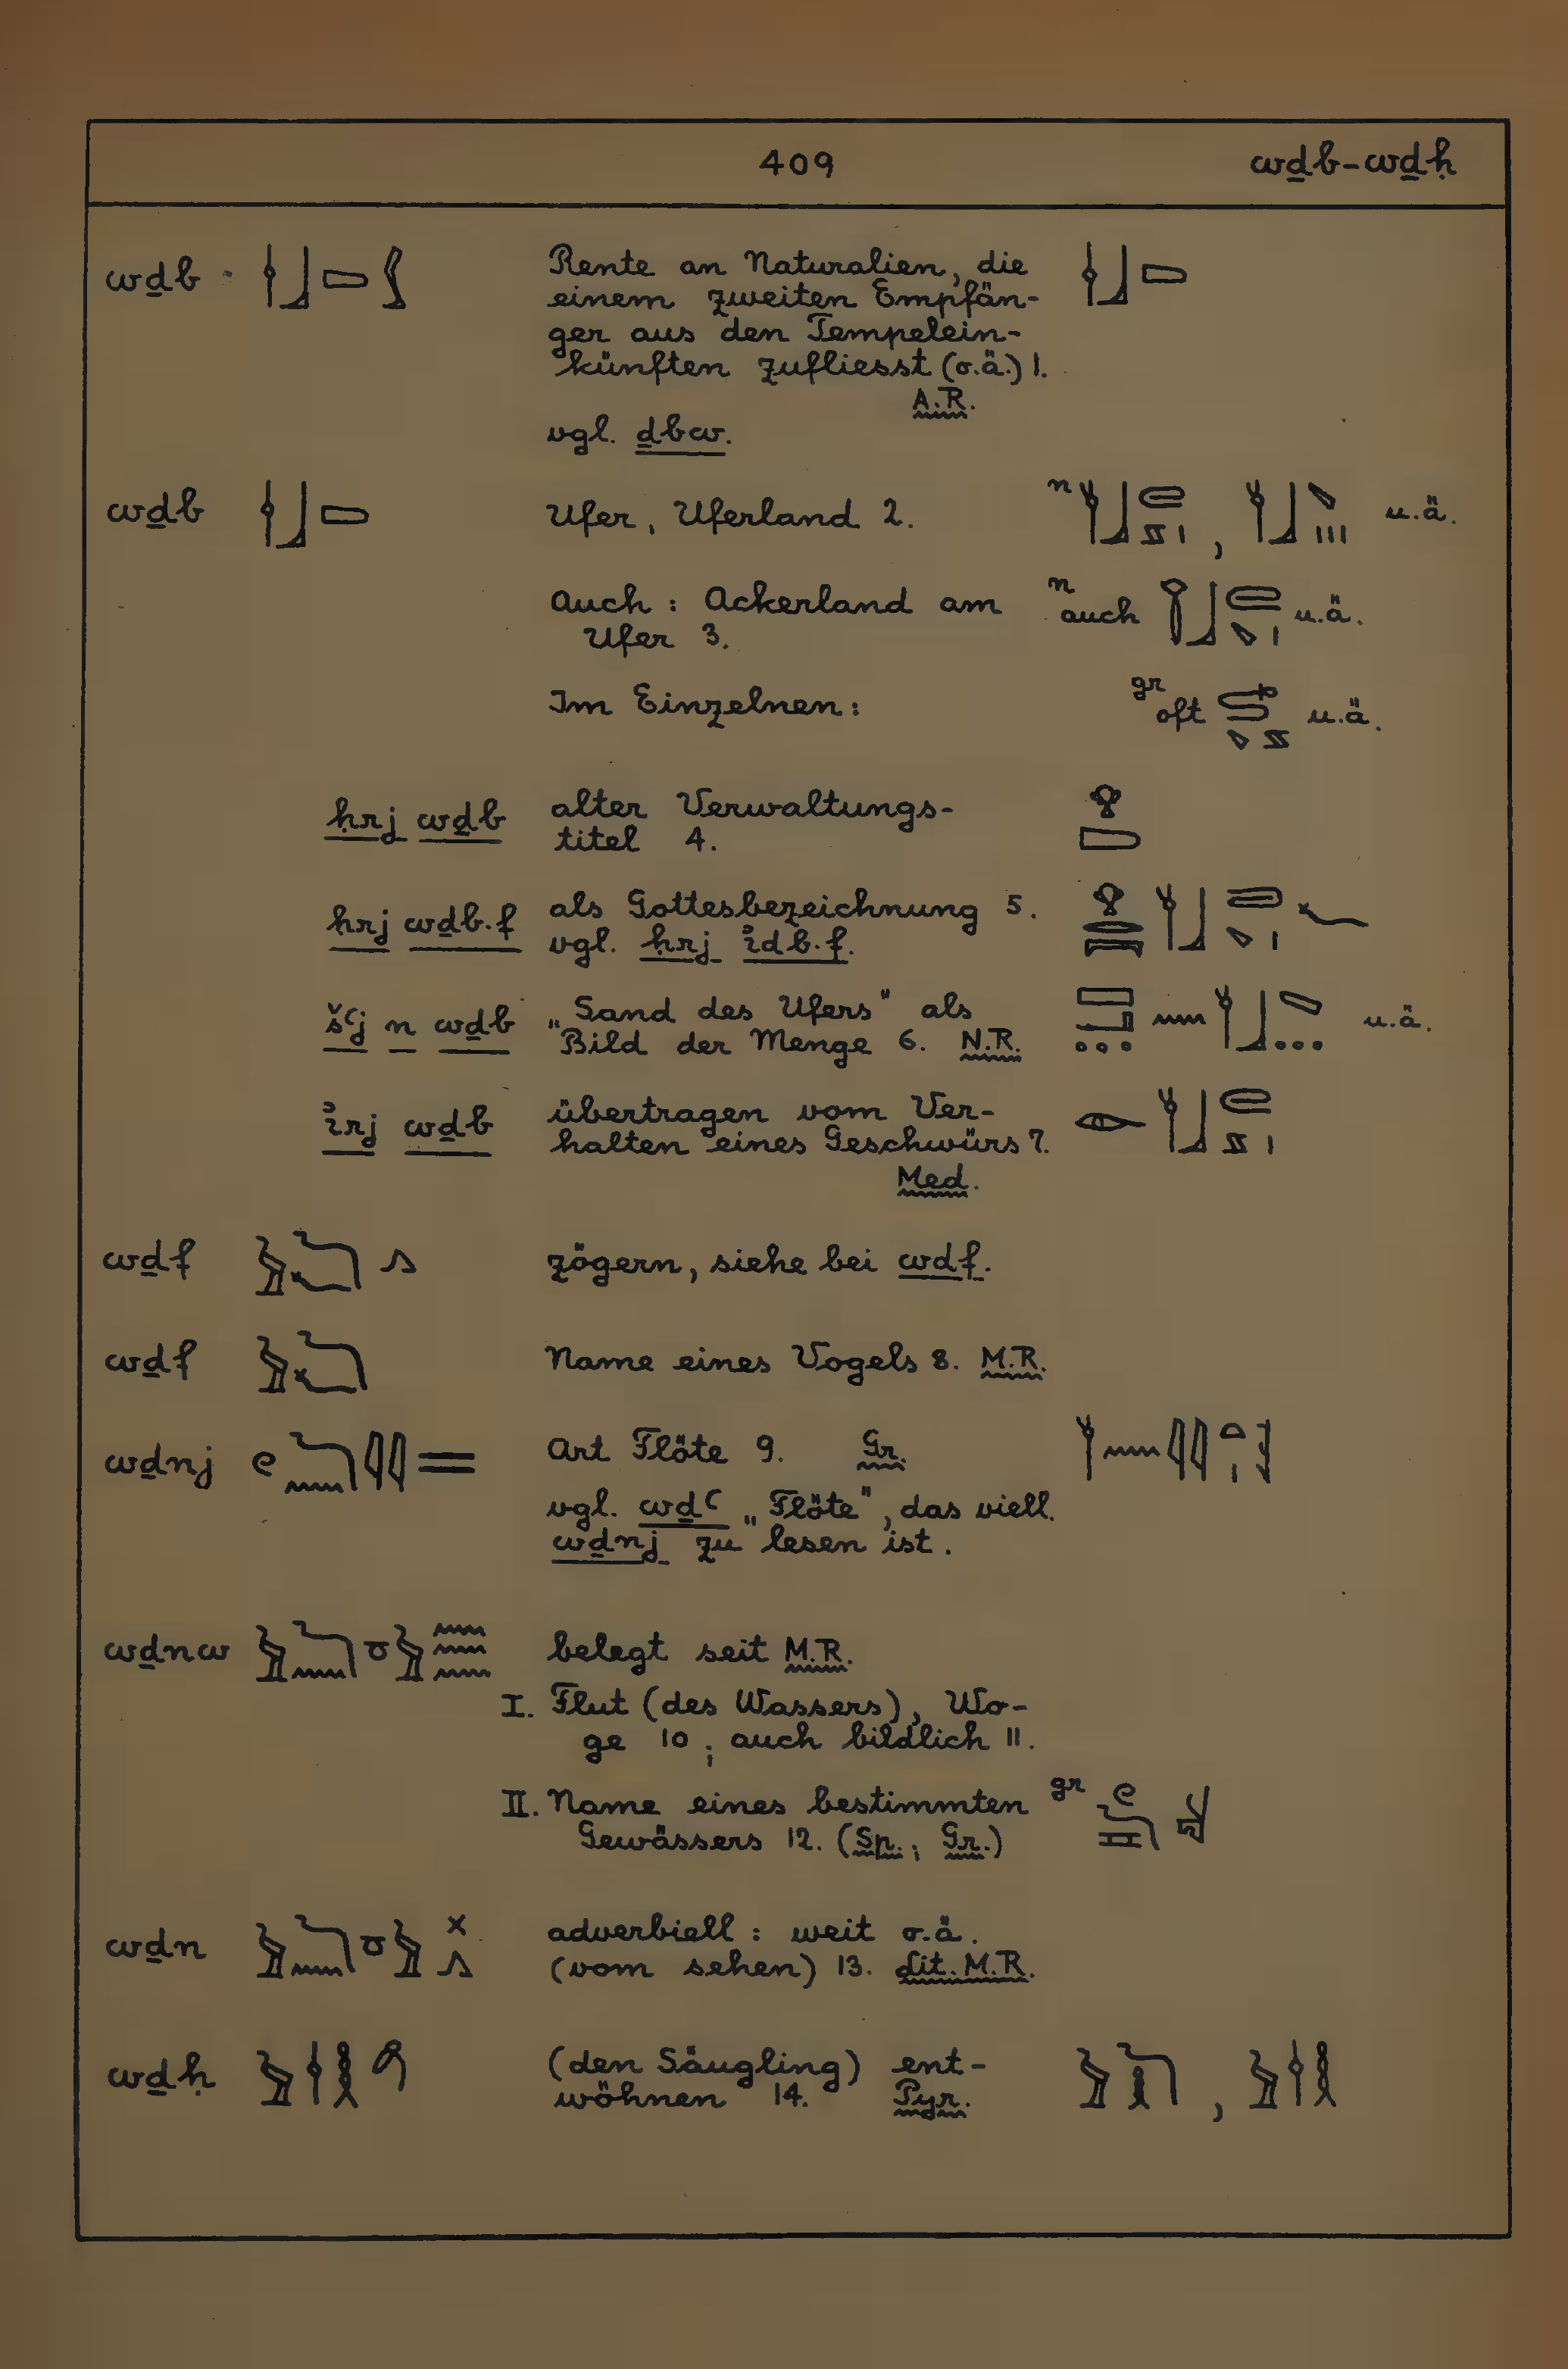 409 wḏb-wḏḥ
wḏb Rente an Naturalien, die
einem zweiten Empfän-
ger aus den Tempelein-
künften zufliesst (o.ä.) 1.
A.R.
vgl. ḏbw.
wḏb Ufer, Uferland 2. n , u.ä.
Auch: Ackerland am n auch u.ä.
Ufer 3.
Im Einzelnen: gr oft u.ä.
ḥrj wḏb alter Verwaltungs-
titel 4.
ḥrj wḏb.f als Gottesbezeichnung 5.
vgl. ḥrj ꞽdb.f.
šꜥj n wḏb „Sand des Ufers" als u.ä.
Bild der Menge 6. N.R.
ꞽrj wḏb übertragen vom Ver-
halten eines Geschwürs 7.
Med.
wḏf zögern, siehe bei wdf.
wḏf Name eines Vogels 8. M.R.
wḏnj Art Flöte 9. Gr.
vgl. wḏꜥ „Flöte", das viell.
wḏnj zu lesen ist.
wḏnw belegt seit M.R.
I. Flut (des Wassers), Wo-
ge 10; auch bildlich 11.
II. Name eines bestimmten gr
Gewässers 12. (Sp.; Gr.)
wḏn adverbiell: weit o.ä.
(vom sehen) 13. Lit. M.R.
wḏḥ (den Säugling) ent- ,
wöhnen 14. Pyr.